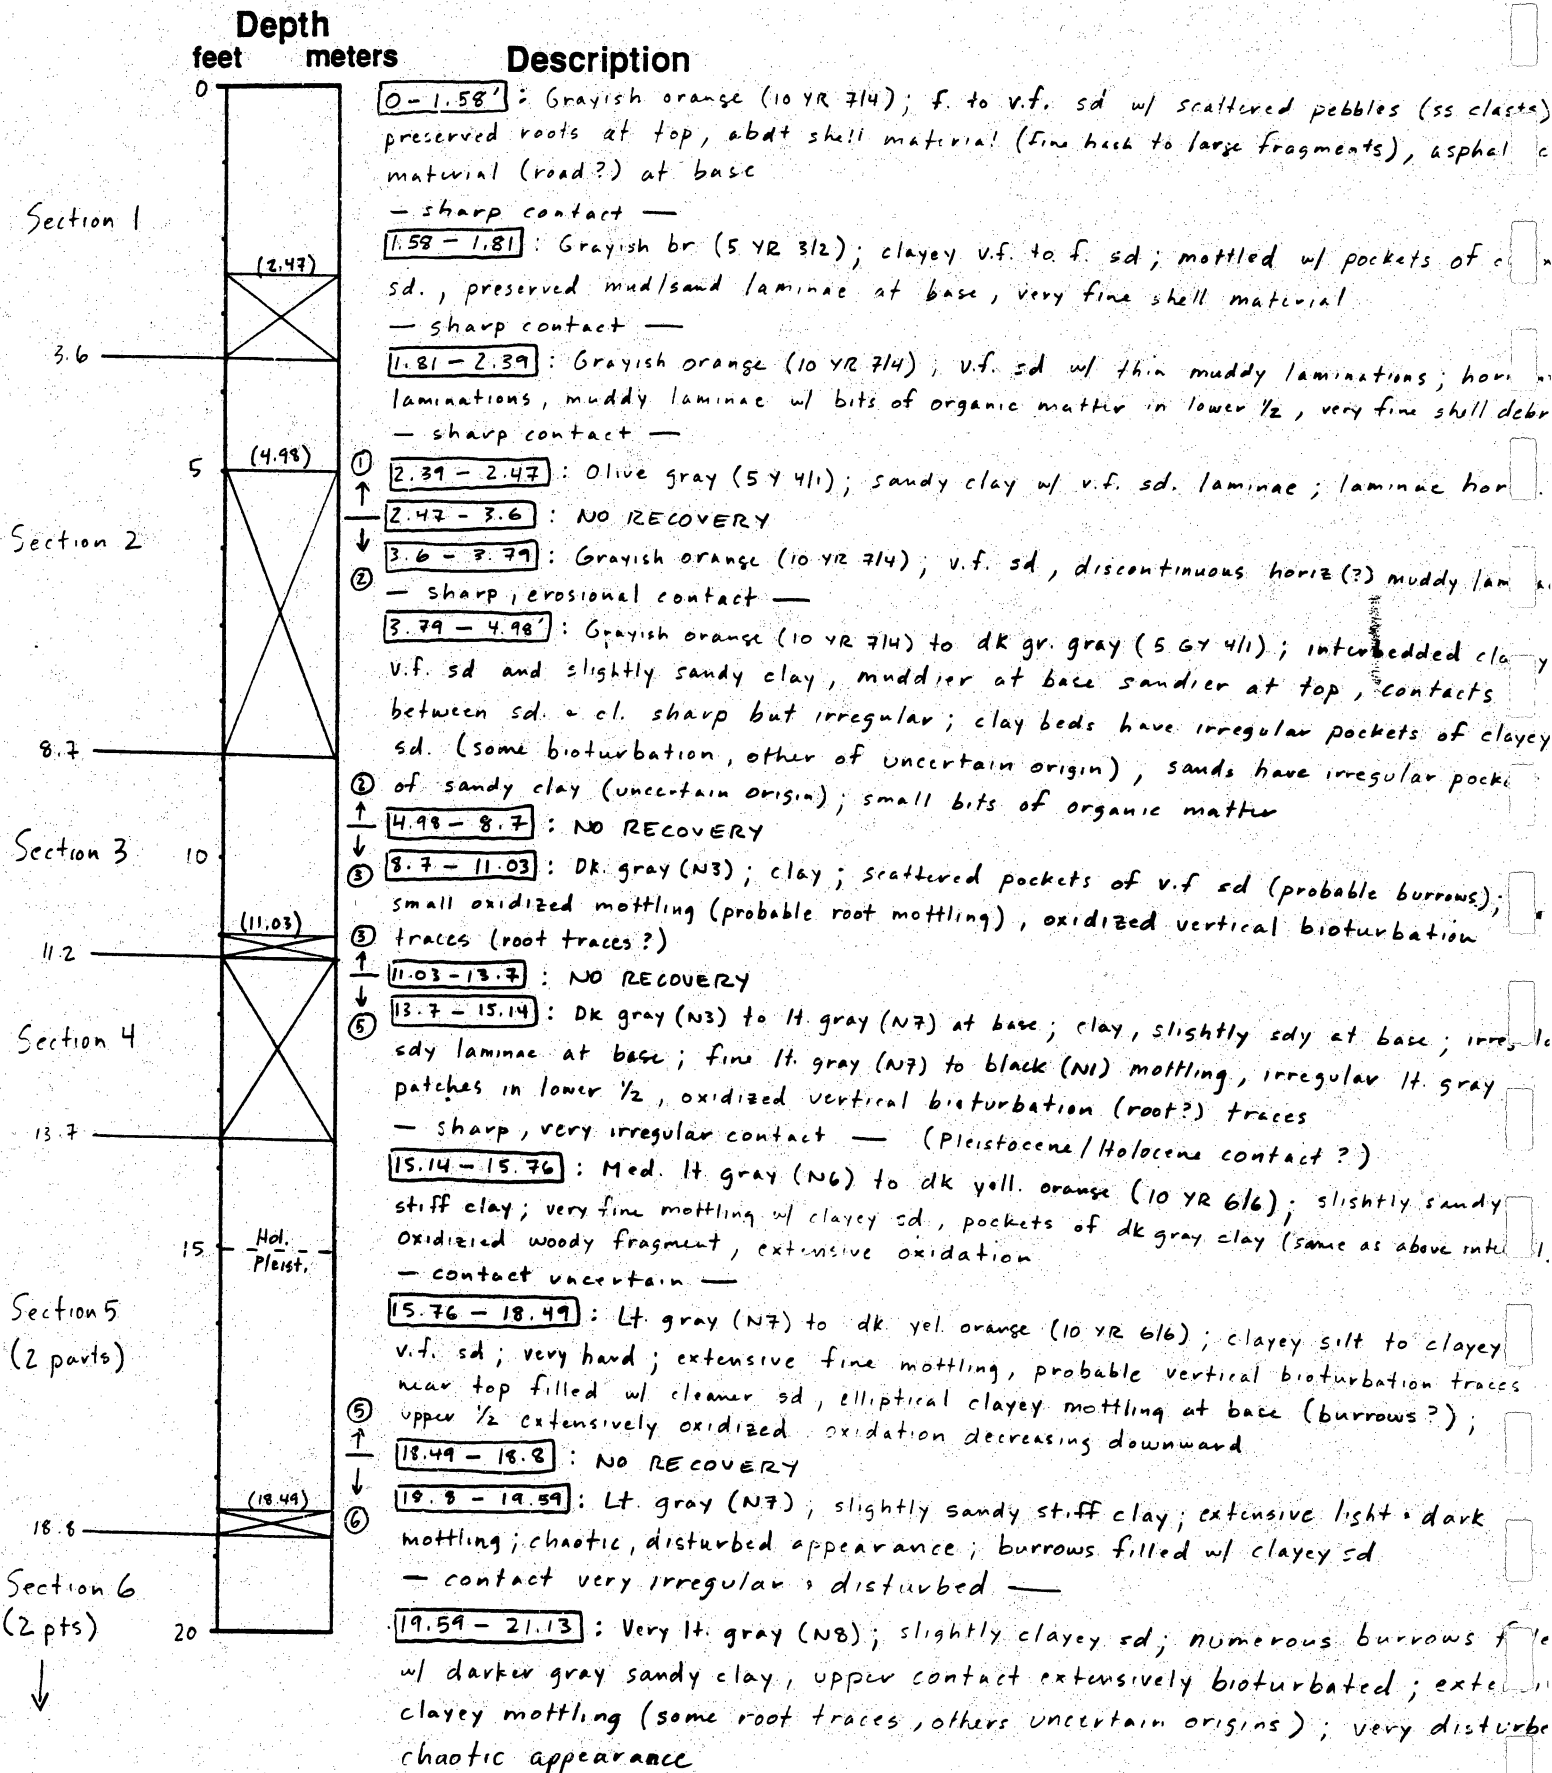 Depth
feet meters Description
0
0 - 1.58' : Grayish orange (10 YR 7/4) ; f. to v.f. sd w/ scattered pebbles (ss clasts)
preserved roots at top , abdt shell material (fine hash to large fragments) , asphal
material (road?) at base
— sharp contact —
Section 1
1.58 - 1.81 : Grayish br (5 YR 3/2) ; clayey v.f. to f. sd ; mottled w/ pockets of
(2.47)
sd. , preserved mud/sand laminae at base , very fine shell material
— sharp contact —
3.6
1.81 - 2.39 : Grayish orange (10 YR 7/4) , v.f. sd w/ thin muddy laminations ;
laminations , muddy laminae w/ bits of organic matter in lower 1/2 , very fine shell debr
— sharp contact —
5 (4.98) ①
2.39 - 2.47 : Olive gray (5 Y 4/1) ; sandy clay w/ v.f. sd. laminae ; laminae hor
↑
2.47 - 3.6 : NO RECOVERY
↓
Section 2
3.6 - 3.79 : Grayish orange (10 YR 7/4) ; v.f. sd , discontinuous horiz (?) muddy lam
②
— sharp , erosional contact —
3.79 - 4.98' : Grayish orange (10 YR 7/4) to dk gr. gray (5 GY 4/1) ; interbedded
v.f. sd and slightly sandy clay , muddier at base sandier at top , contacts
between sd. & cl. sharp but irregular ; clay beds have irregular pockets of clayey
8.7
sd. (some bioturbation , other of uncertain origin) , sands have irregular pock
② of sandy clay (uncertain origin) ; small bits of organic matter
↑
4.98 - 8.7 : NO RECOVERY
↓
Section 3 10
③ 8.7 - 11.03 : Dk. gray (N3) ; clay ; scattered pockets of v.f sd (probable burrows) ;
small oxidized mottling (probable root mottling) , oxidized vertical bioturbation
(11.03)
③ traces (root traces ?)
11.2
↑
11.03 - 13.7 : NO RECOVERY
↓
⑤ 13.7 - 15.14 : Dk gray (N3) to lt. gray (N7) at base ; clay , slightly sdy at base ;
Section 4
sdy laminae at base ; fine lt. gray (N7) to black (N1) mottling , irregular lt. gray
patches in lower 1/2 , oxidized vertical bioturbation (root?) traces
13.7
— sharp , very irregular contact — (Pleistocene / Holocene contact ?)
15.14 - 15.76 : Med. lt. gray (N6) to dk yell. orange (10 YR 6/6) ; slightly sandy
stiff clay ; very fine mottling w/ clayey sd , pockets of dk gray clay (same as above
15 Hol.
Pleist.
oxidizied woody fragment , extensive oxidation
— contact uncertain —
Section 5
(2 parts)
15.76 - 18.49 : Lt. gray (N7) to dk. yel. orange (10 YR 6/6) ; clayey silt to clayey
v.f. sd ; very hard ; extensive fine mottling , probable vertical bioturbation traces
near top filled w/ cleaner sd , elliptical clayey mottling at base (burrows ?) ;
⑤ upper 1/2 extensively oxidized oxidation decreasing downward
↑
18.49 - 18.8 : NO RECOVERY
↓
(18.49)
⑥ 18.8 - 19.59 : Lt. gray (N7) , slightly sandy stiff clay ; extensive light & dark
18.8
mottling ; chaotic , disturbed appearance ; burrows filled w/ clayey sd
— contact very irregular & disturbed —
Section 6
(2 pts)
↓
20
19.59 - 21.13 : Very lt. gray (N8) ; slightly clayey sd ; numerous burrows
w/ darker gray sandy clay , upper contact extensively bioturbated ;
clayey mottling (some root traces , others uncertain origins) ; very disturbe
chaotic appearance